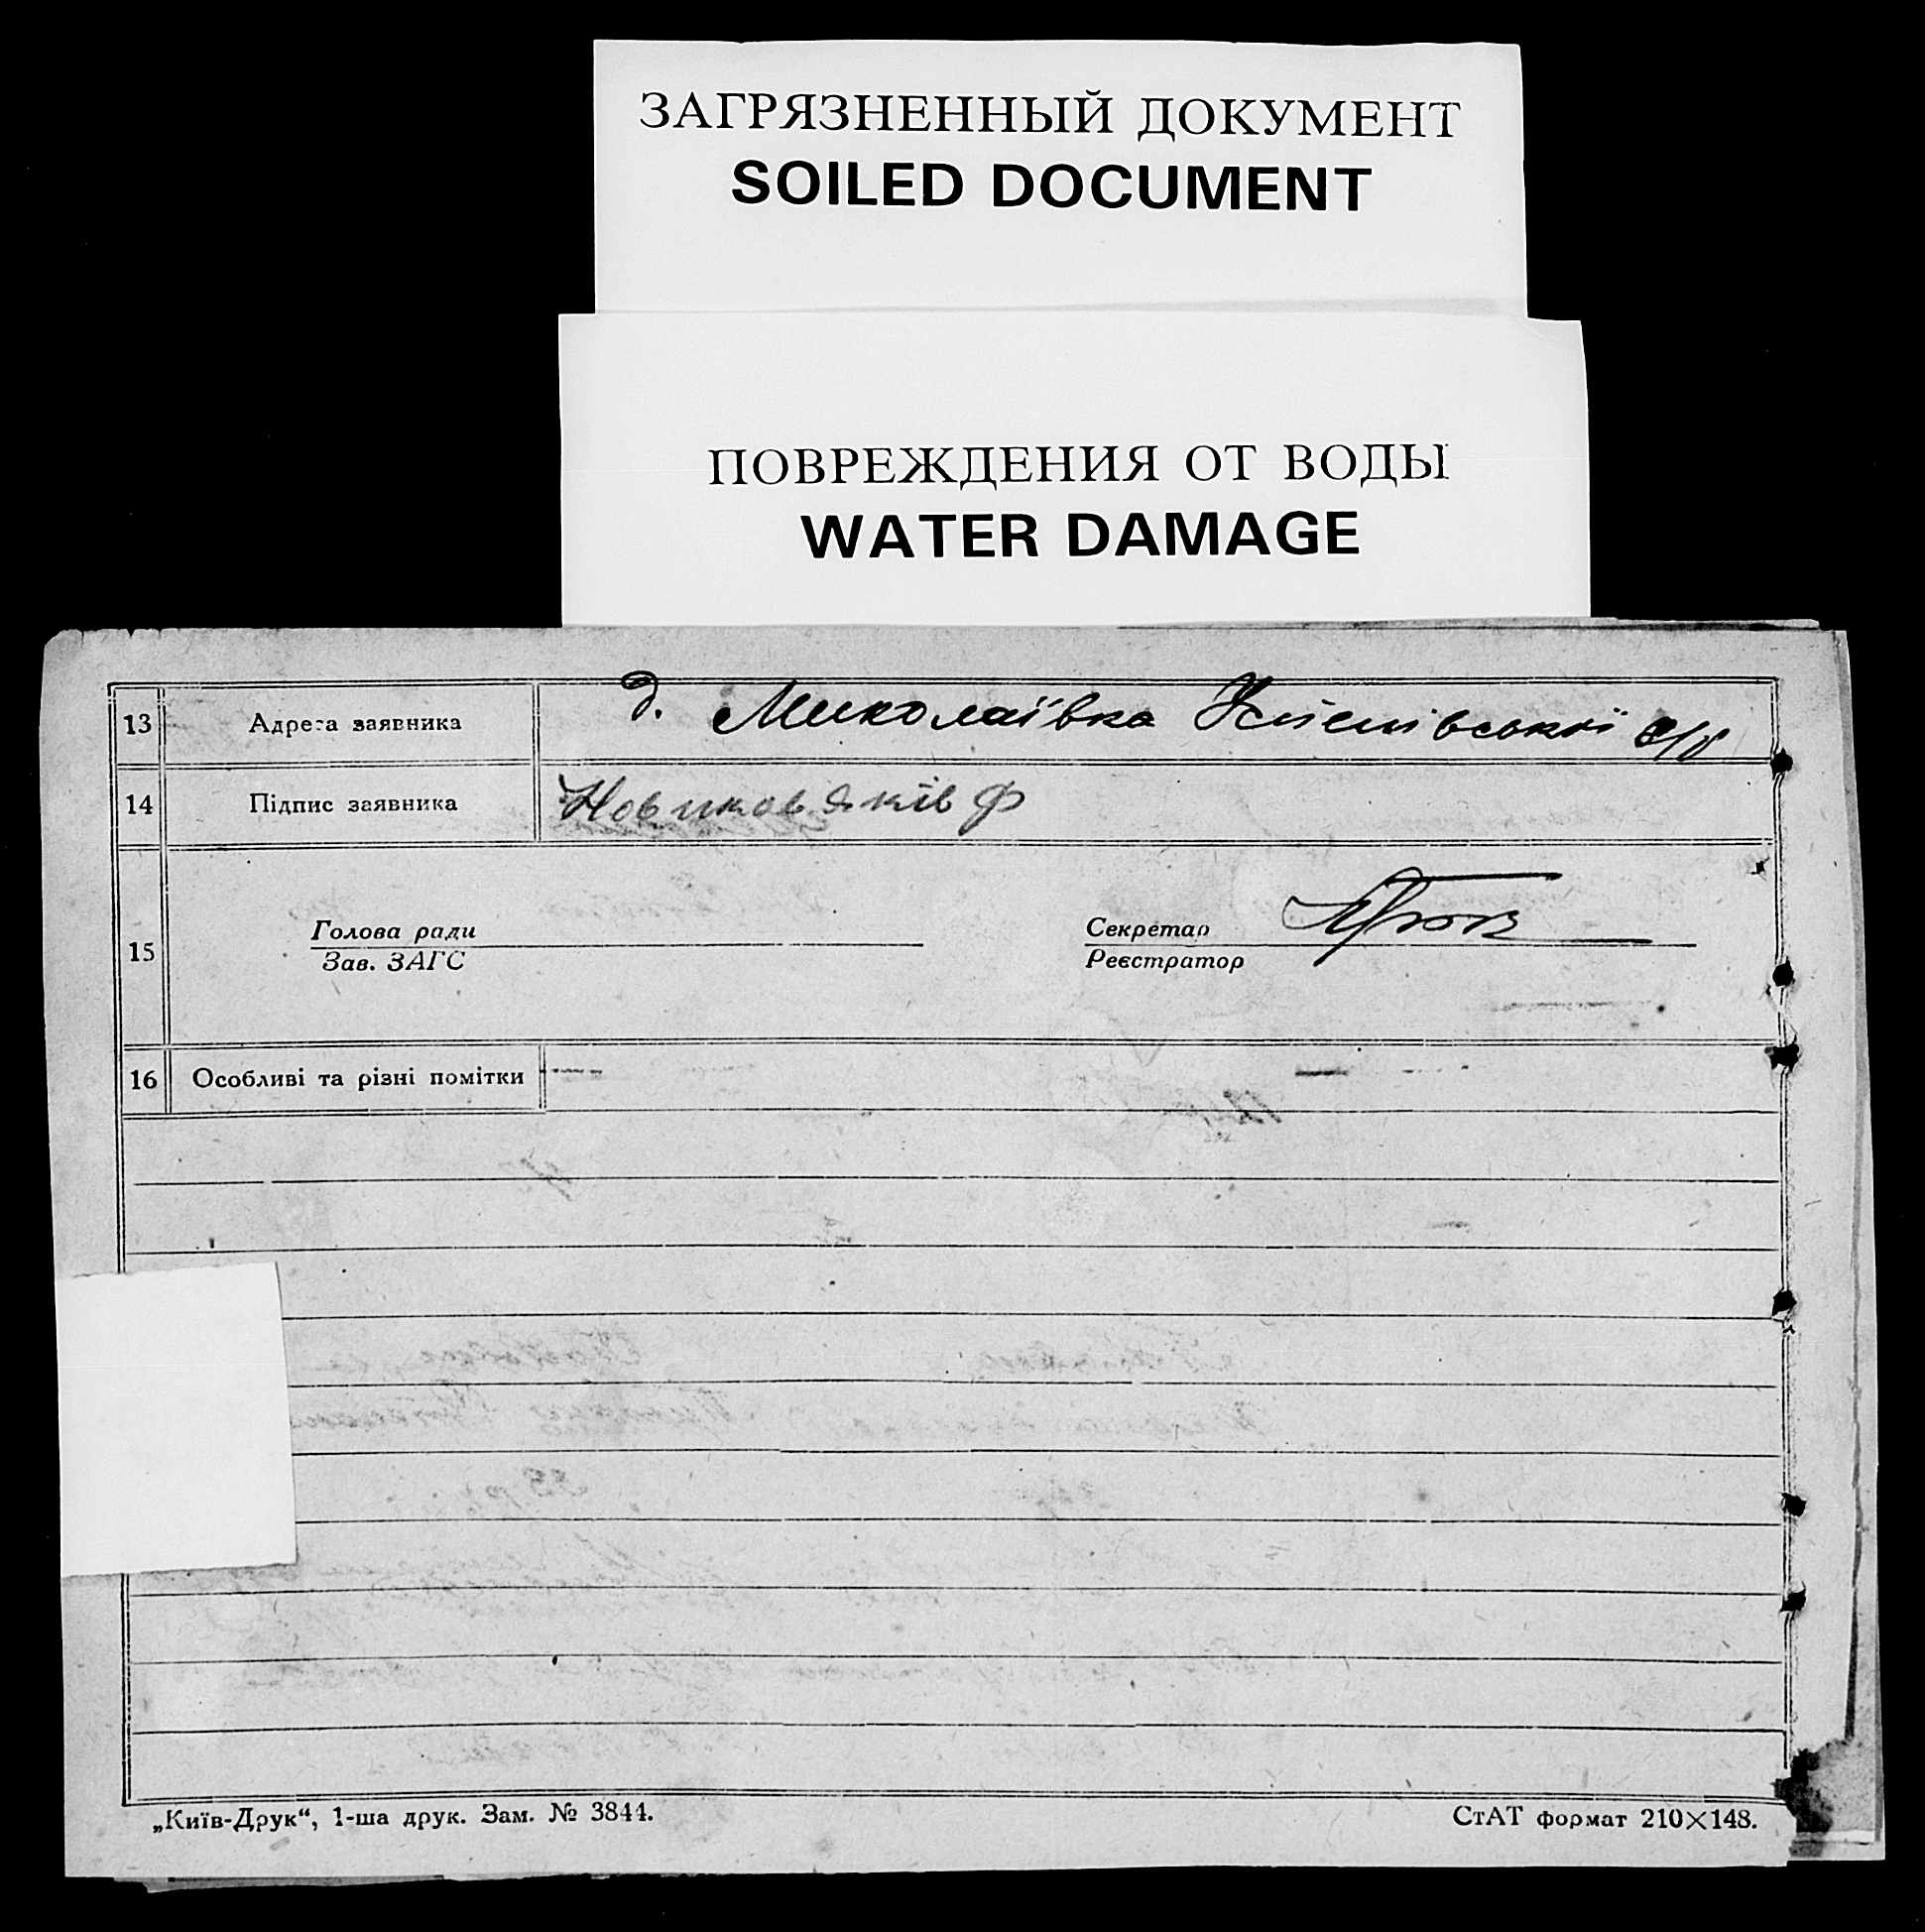 ЗАГРЯЗНЕННЫЙ ДОКУМЕНТ
SOILED DOCUMENT
ПОВРЕЖДЕНИЯ ОТ ВОДЫ
WATER DAMAGE
13 Адреса заявника д. Миколаївка с/р
14 Підпис заявника Новиков Яків Ф
Голова ради Секретар
15
Зав. ЗАГС Реєстратор
16 Особливі та різні помітки
„Київ-Друк“, 1-ша друк. Зам. № 3844. СтАТ формат 210×148.